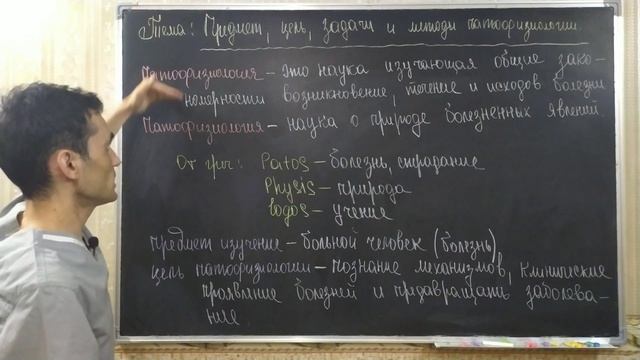 Тема: Предмет, цель, задачи и методы патофизиологии.
Патофизиология – это наука изучающая общие зако-
номерности возникновение, течение и исходов болезни
Патофизиология – наука о природе болезненных явлений.
От греч: Patos – болезнь, страдание
Physis – природа
logos – учение
Предмет изучение – больной человек (болезнь)
цель патофизиологии – познание механизмов, клинические
проявление болезней и предавращать заболева-
ние